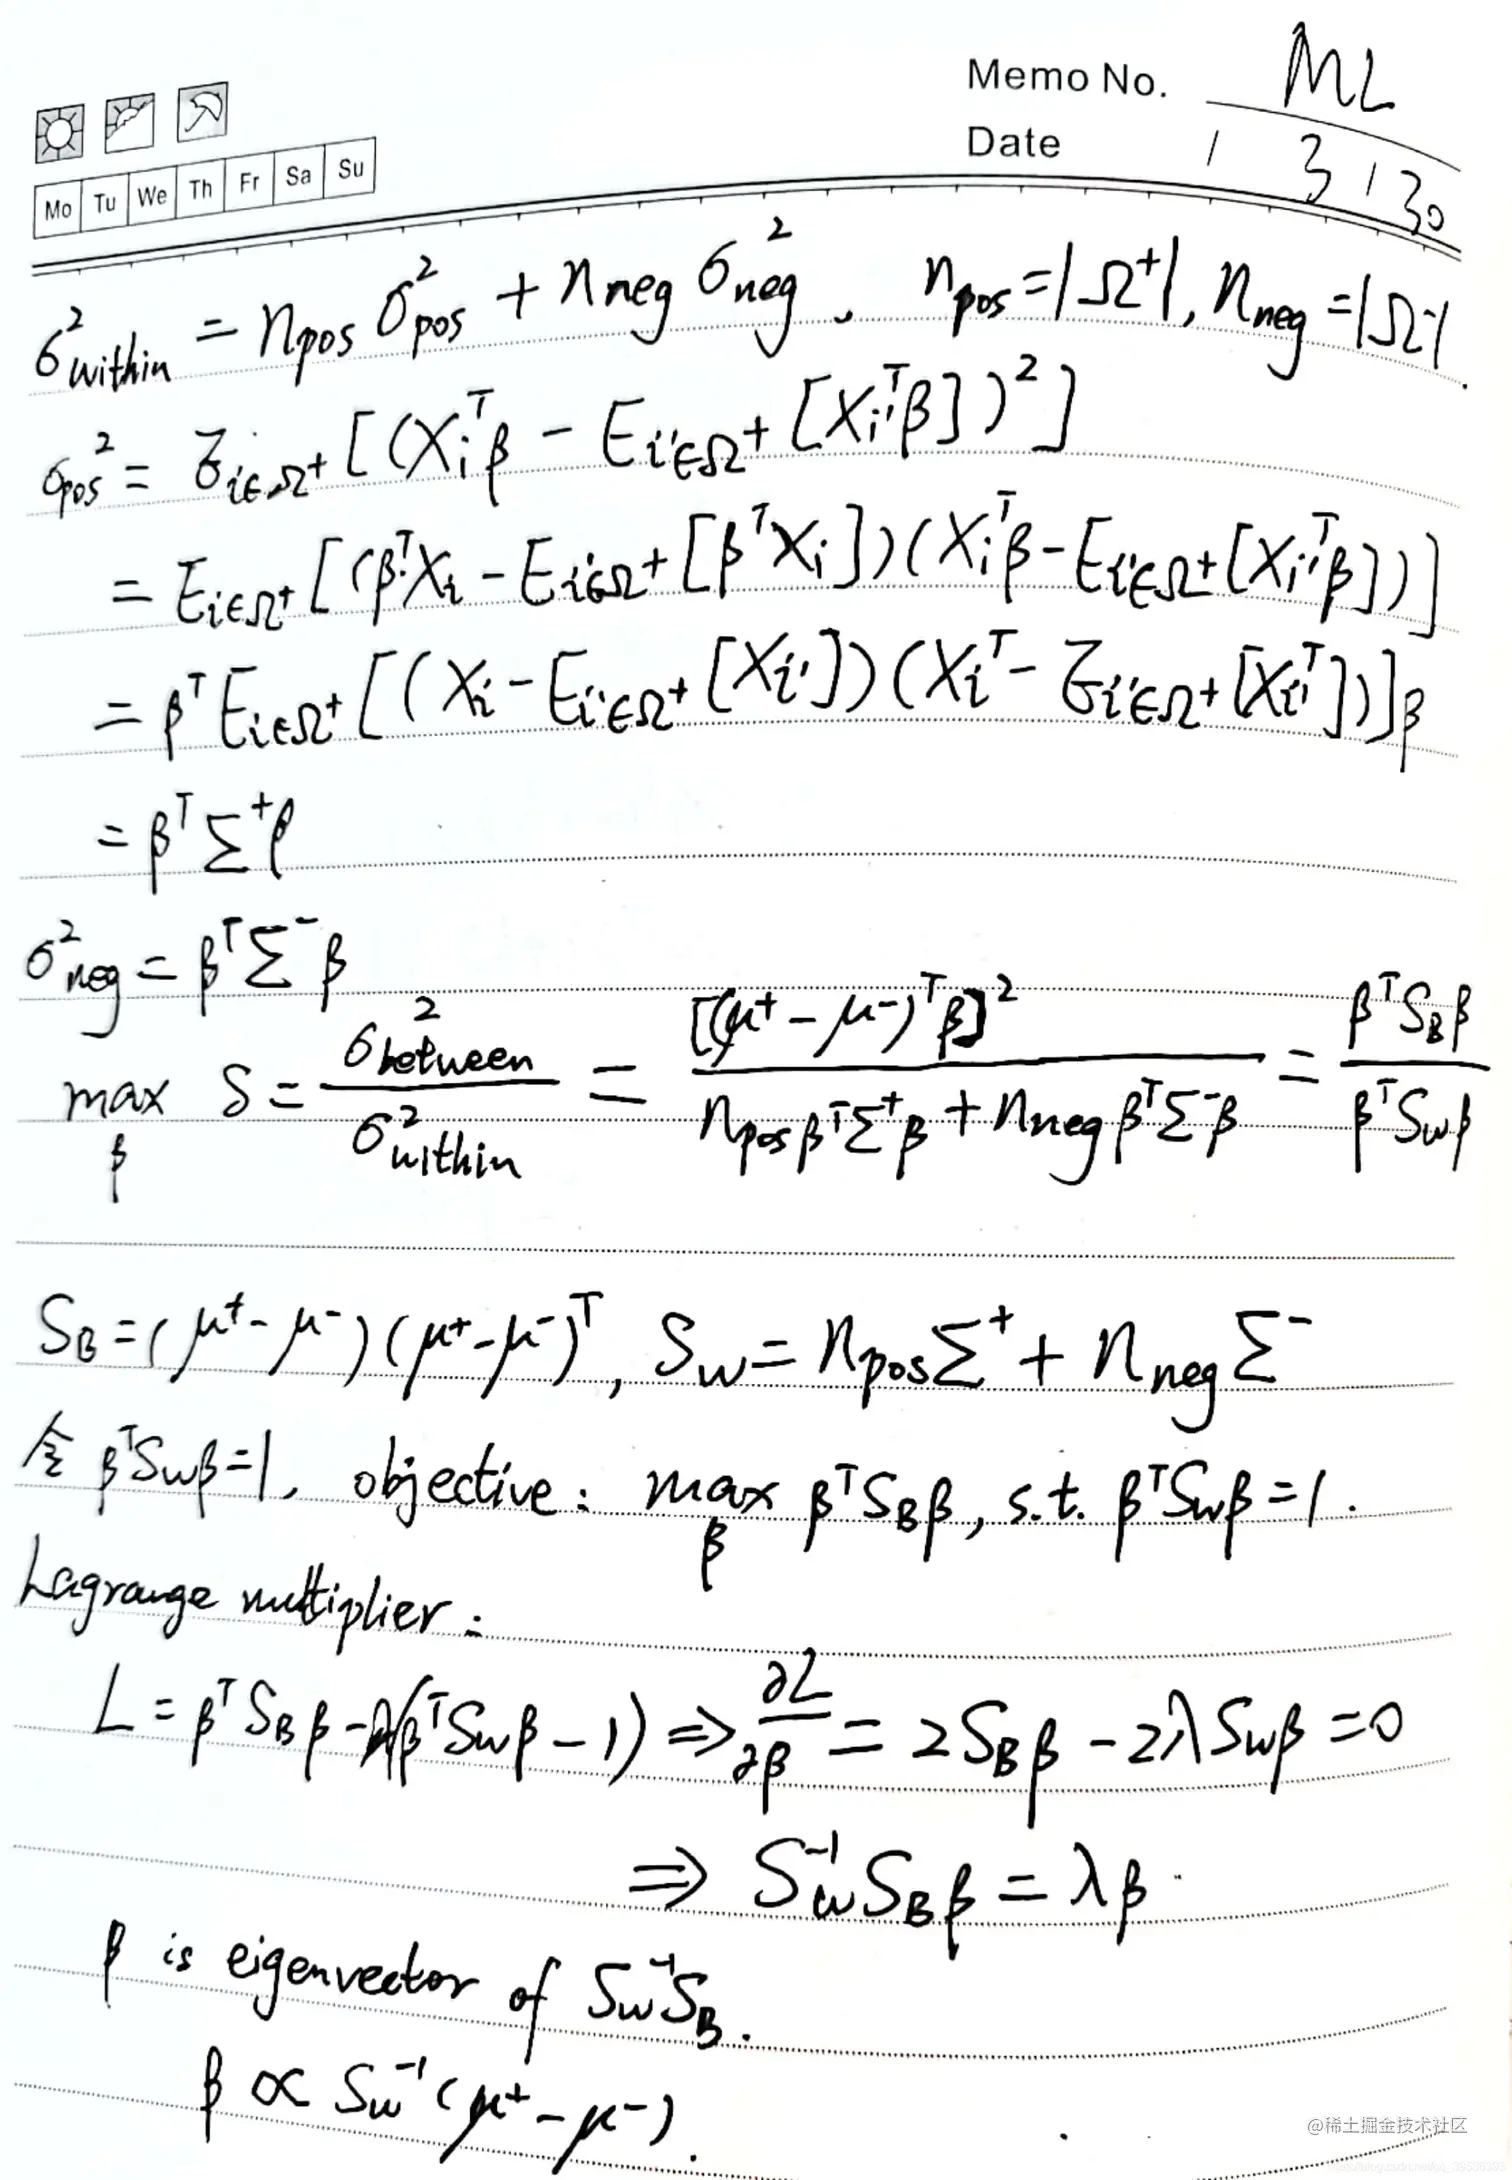 Memo No. ML
Date / 3 / 30
Mo Tu We Th Fr Sa Su
σ²within = npos σ²pos + nneg σ²neg, npos = |Ω⁺|, nneg = |Ω⁻|.
σpos² = E_{i∈Ω⁺}[(Xᵢᵀβ - E_{i'∈Ω⁺}[Xᵢ'ᵀβ])²]
= E_{i∈Ω⁺}[(βᵀXᵢ - E_{i'∈Ω⁺}[βᵀXᵢ])(Xᵢᵀβ - E_{i'∈Ω⁺}[Xᵢ'ᵀβ])]
= βᵀE_{i∈Ω⁺}[(Xᵢ - E_{i'∈Ω⁺}[Xᵢ'])(Xᵢᵀ - E_{i'∈Ω⁺}[Xᵢ'ᵀ])]β
= βᵀΣ⁺β
σ²neg = βᵀΣ⁻β
max_β S = σ²between / σ²within = [(μ⁺ - μ⁻)ᵀβ]² / (npos βᵀΣ⁺β + nneg βᵀΣ⁻β) = βᵀS_Bβ / βᵀS_wβ
S_B = (μ⁺ - μ⁻)(μ⁺ - μ⁻)ᵀ, S_w = npos Σ⁺ + nneg Σ⁻
令 βᵀS_wβ = 1, objective: max_β βᵀS_Bβ, s.t. βᵀS_wβ = 1.
Lagrange multiplier:
L = βᵀS_Bβ - λ(βᵀS_wβ - 1) ⇒ ∂L/∂β = 2S_Bβ - 2λS_wβ = 0
⇒ S_w⁻¹S_Bβ = λβ.
β is eigenvector of S_w⁻¹S_B.
β ∝ S_w⁻¹(μ⁺ - μ⁻).
@稀土掘金技术社区